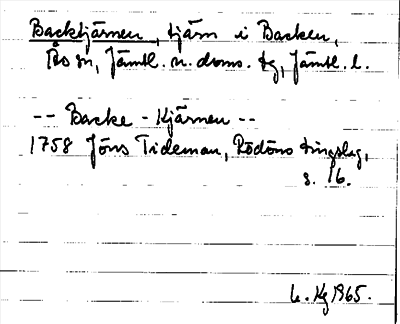 Backtjärnen, tjärn i Backen,
Ås sn, Jämtl. n. doms. tg, Jämtl. l.
-- Backe-Kjärnen --
1758 Jöns Tideman, Rödöns tingslag,
s. 16.
1965.